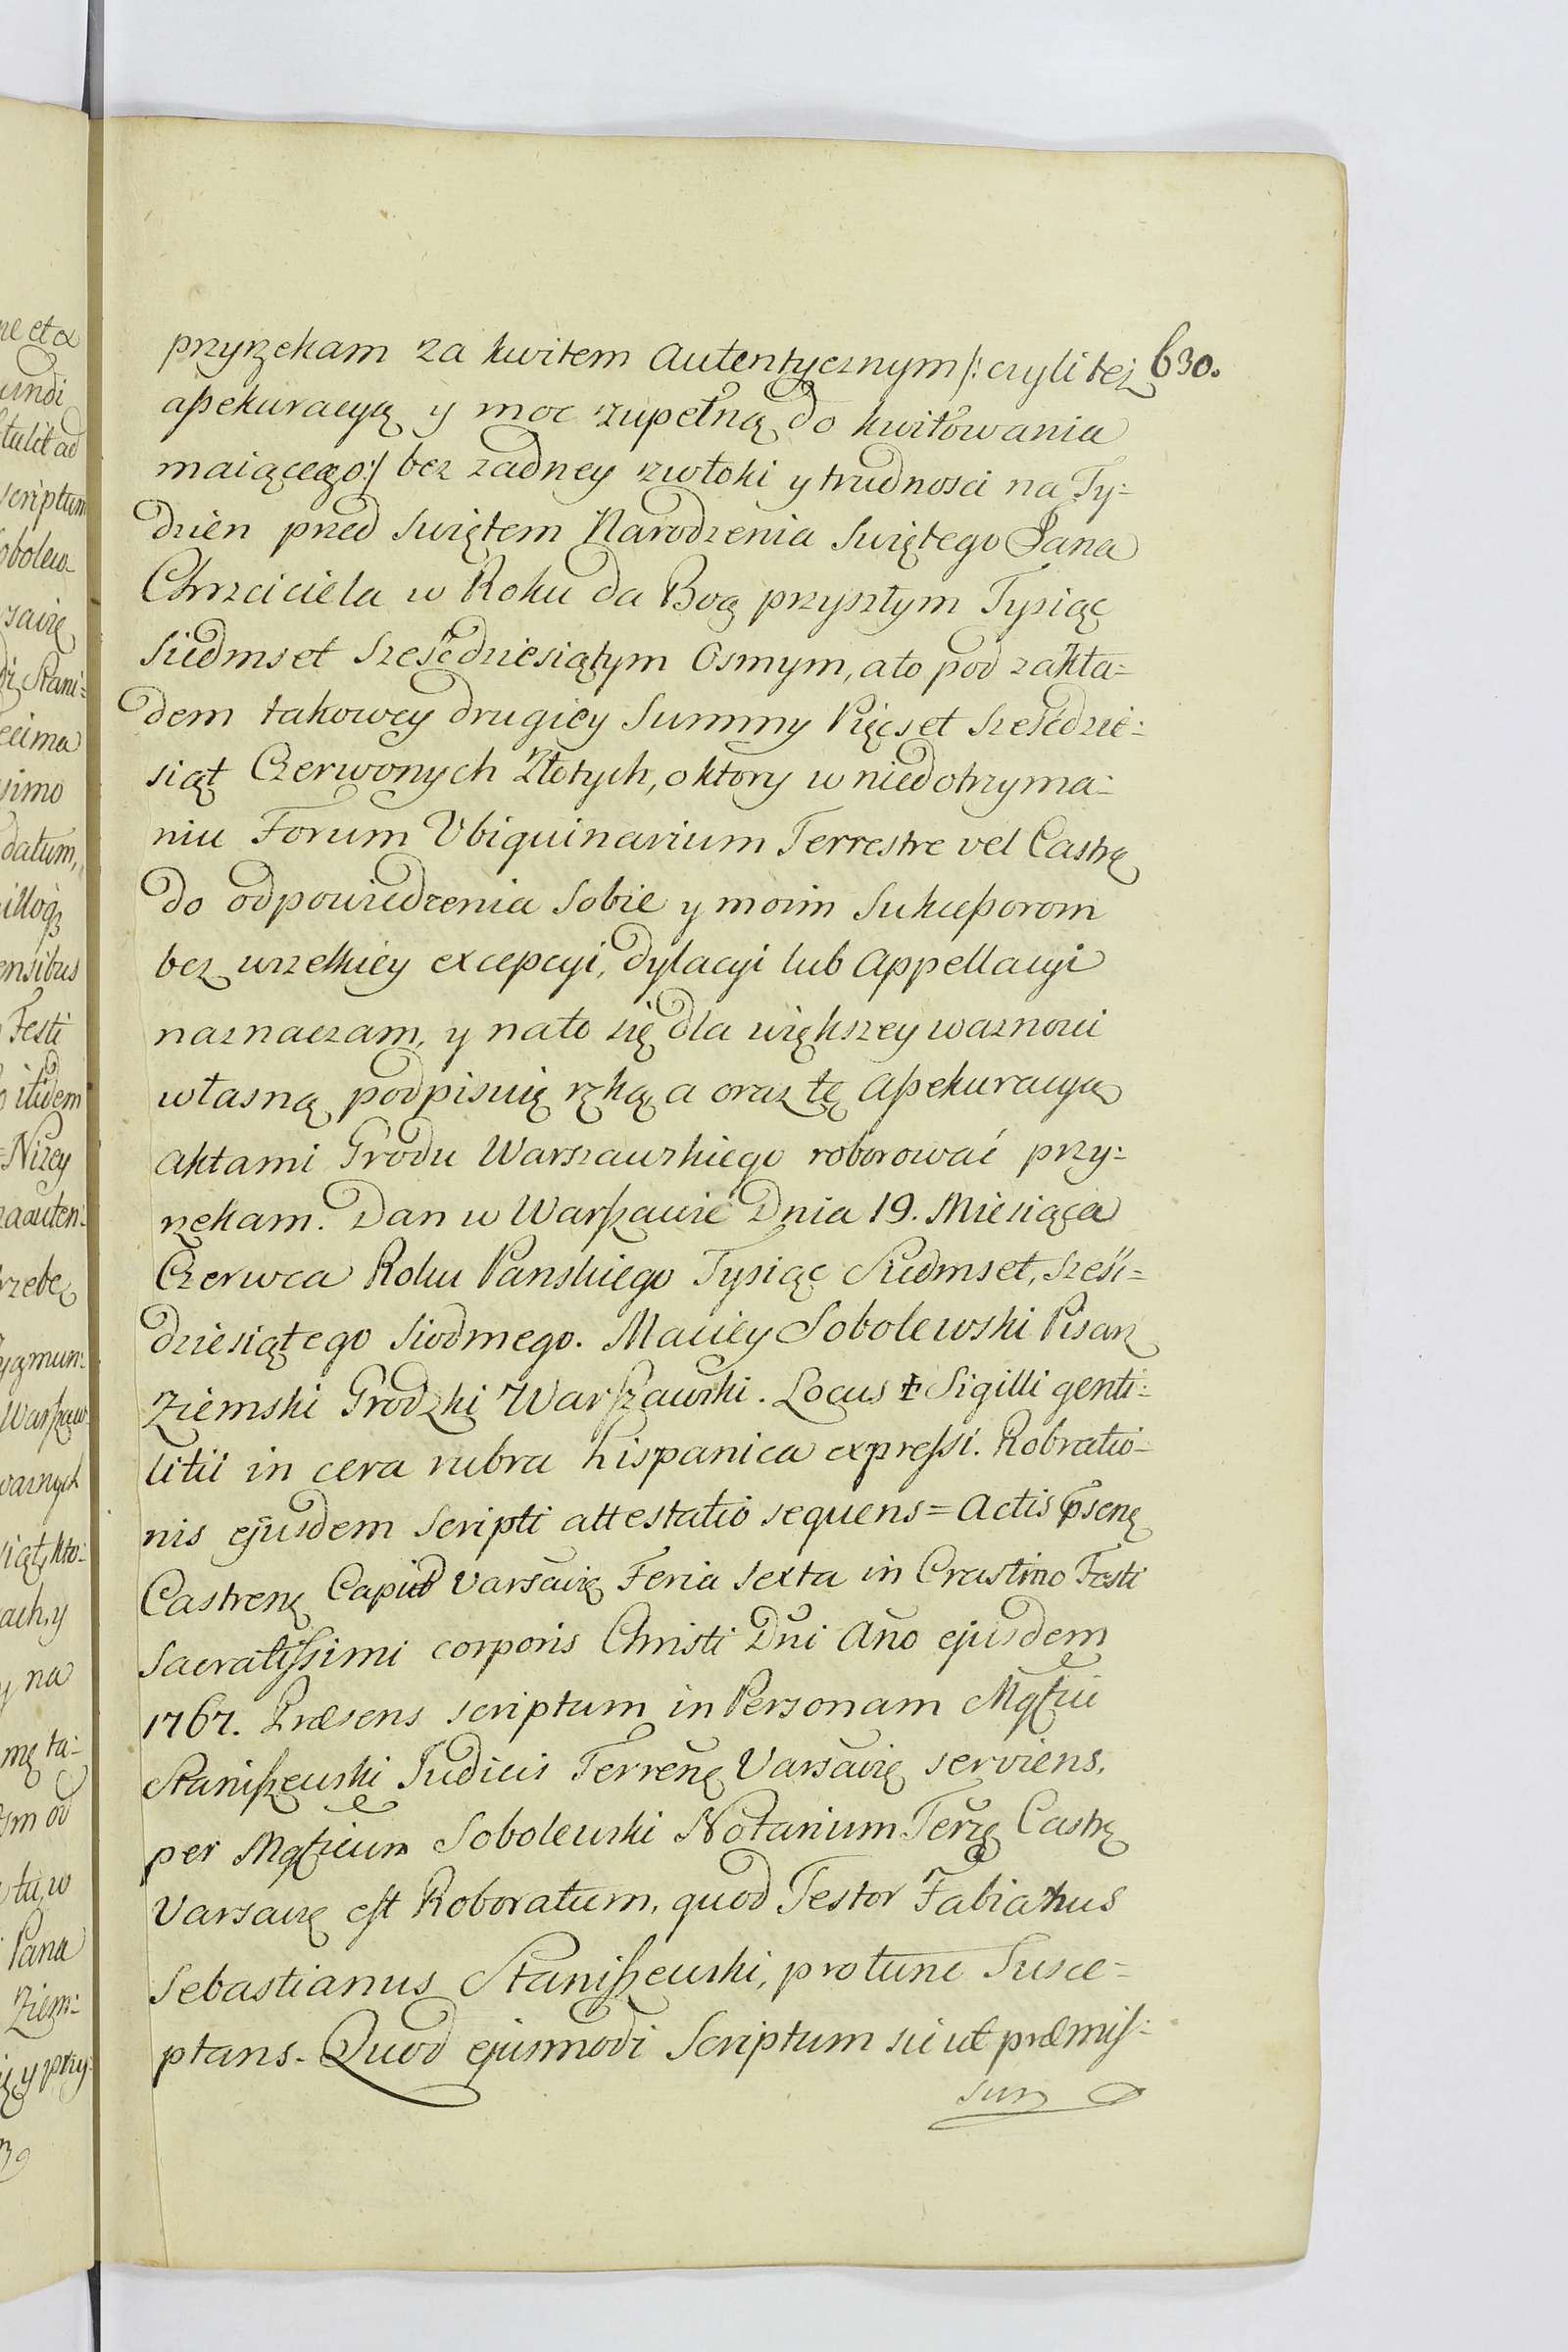 630.
przyrzekam za kwitem Autentycznym /: czyli też
assekuracyą y moc zupełną do kwitowania
maiącego :/ bez zadney zwłoki y trudnosci na Ty=
dzien przed Swiętem Narodzenia Swiętego Jana
Chrzciciela w Roku da Bog przyszłym Tysiąc
Siedmset Sześćdziesiątym Osmym, a to pod zakła=
dem takowey drugiey Summy Pięcset Sześćdzie=
siąt Czerwonych Złotych, o ktory w niedotrzyma=
niu Forum Ubiquinarium Terrestre vel Castrę
do odpowiedzenia Sobie y moim Sukcessorom
bez wszelkiey excepcyi, dylacyi lub Appellacyi
naznaczam, y nato się dla większey waznosci
własną podpisuię ręką, a oraz tę Assekuracyą
Aktami Grodu Warszawskiego roborować przy=
rzekam. Dan w Warszawie Dnia 19. Miesiąca
Czerwca Roku Panskiego Tysiąc Siedmset, Sześć=
dziesiątego Siodmego. Maciey Sobolewski Pisarz
Ziemski Grodzki Warszawski. Locus ‡ Sigilli genti=
litii in cera rubra hispanica expressi. Robratio=
nis ejusdem Scripti attestatio sequens = Actis pñsenę
Castrenę Capit̃ Varsavię Feria Sexta in Crastino Festi
Sacratissimi corporis Christi Dñi Año ejusdem
1767. Præsens scriptum in Personam Mgfici
Staniszewski Judicis Terrenę Varsavię serviens,
per Mgficum Sobolewski Notarium Terrę Castrę
Varsavię est Roboratum, quod Testor Fabianus
Sebastianus Staniszewski, protunc Susce=
ptans. Quod ejusmodi Scriptum sicut præmis=
sum